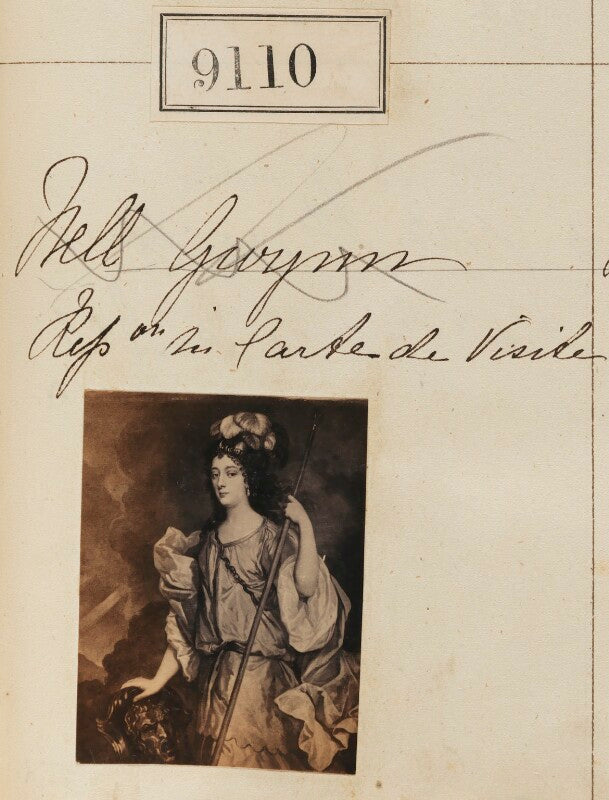 9110
Nell Gwynn
Rep on in Carte de Visite